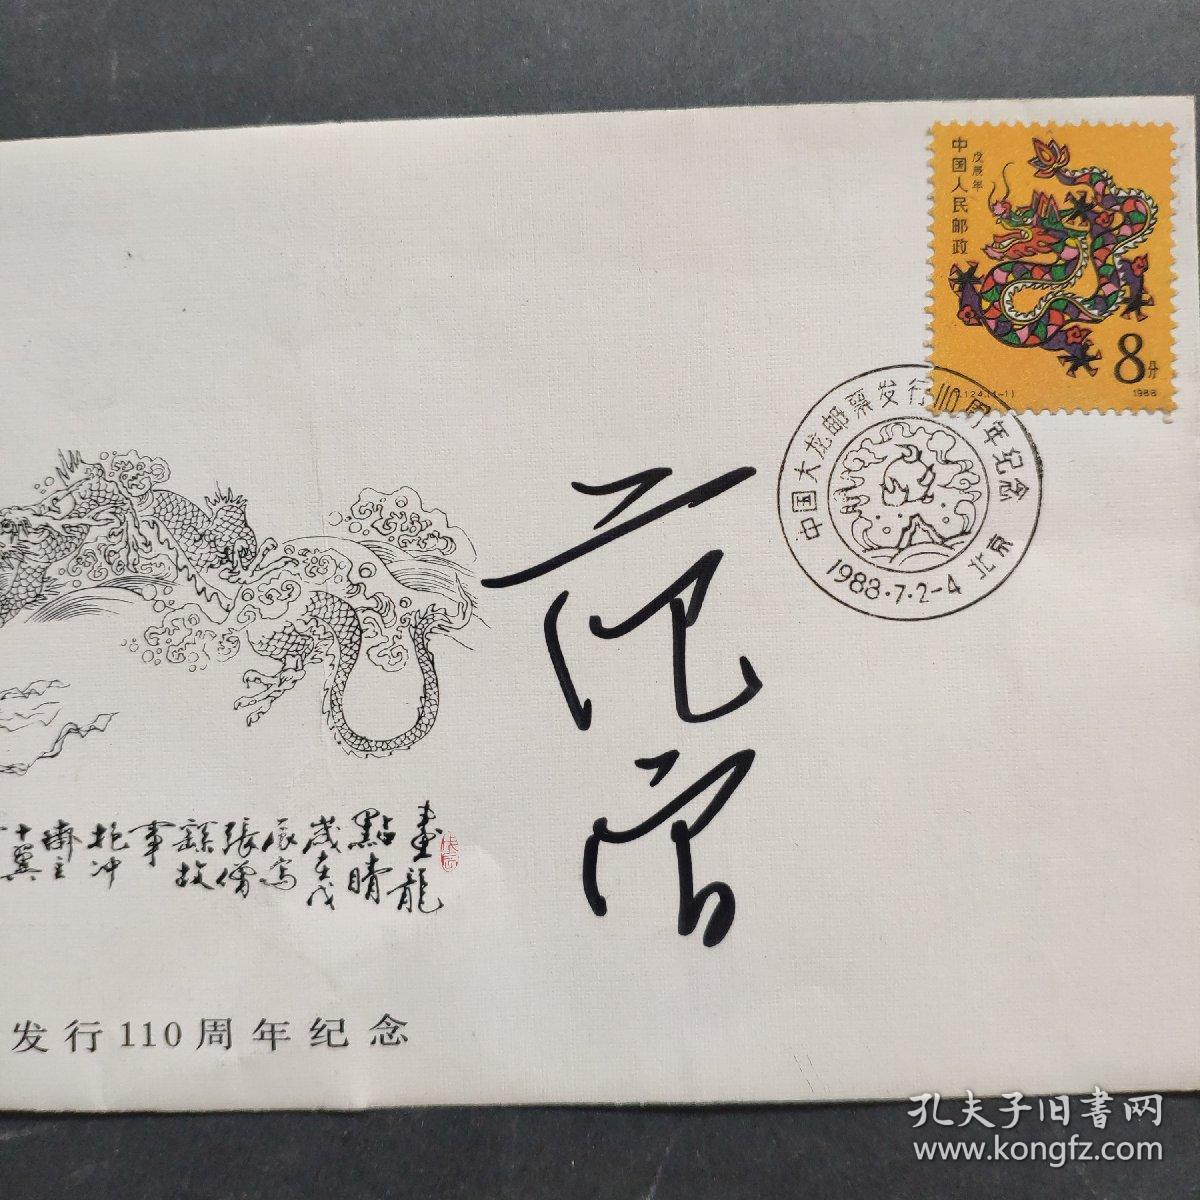 中国人民邮政
戊辰年
8分
T.124.(1-1)
1988
中国大龙邮票发行110周年纪念
1988·7·2-4 北京
范曾
畫龍
點睛
歲在戊
辰寫
張僧
繇故
事
抱冲
齋主
十翼
发行110周年纪念
孔夫子旧書网
www.kongfz.com